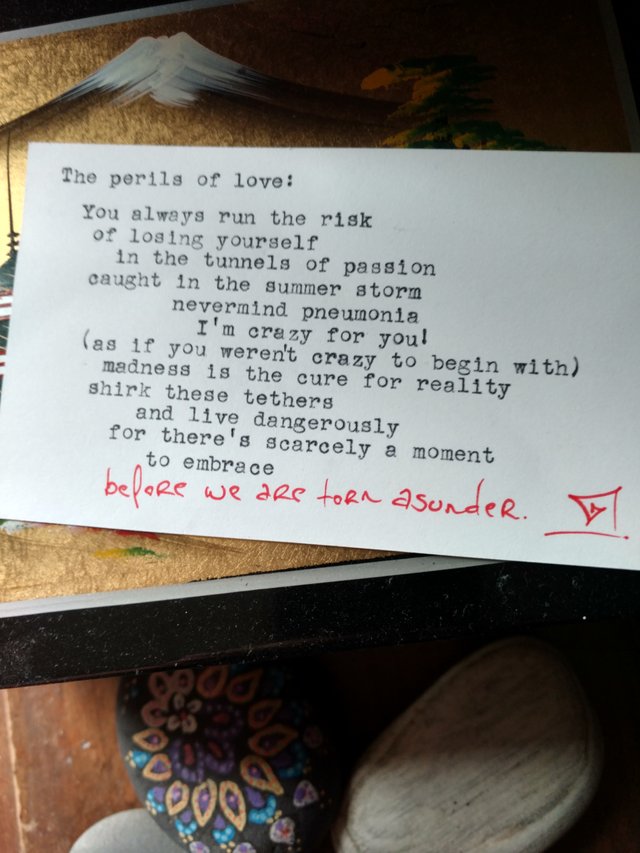 The perils of love:
You always run the risk
of losing yourself
in the tunnels of passion
caught in the summer storm
nevermind pneumonia
I'm crazy for you!
(as if you weren't crazy to begin with)
madness is the cure for reality
shirk these tethers
and live dangerously
for there's scarcely a moment
to embrace
before we are torn asunder.